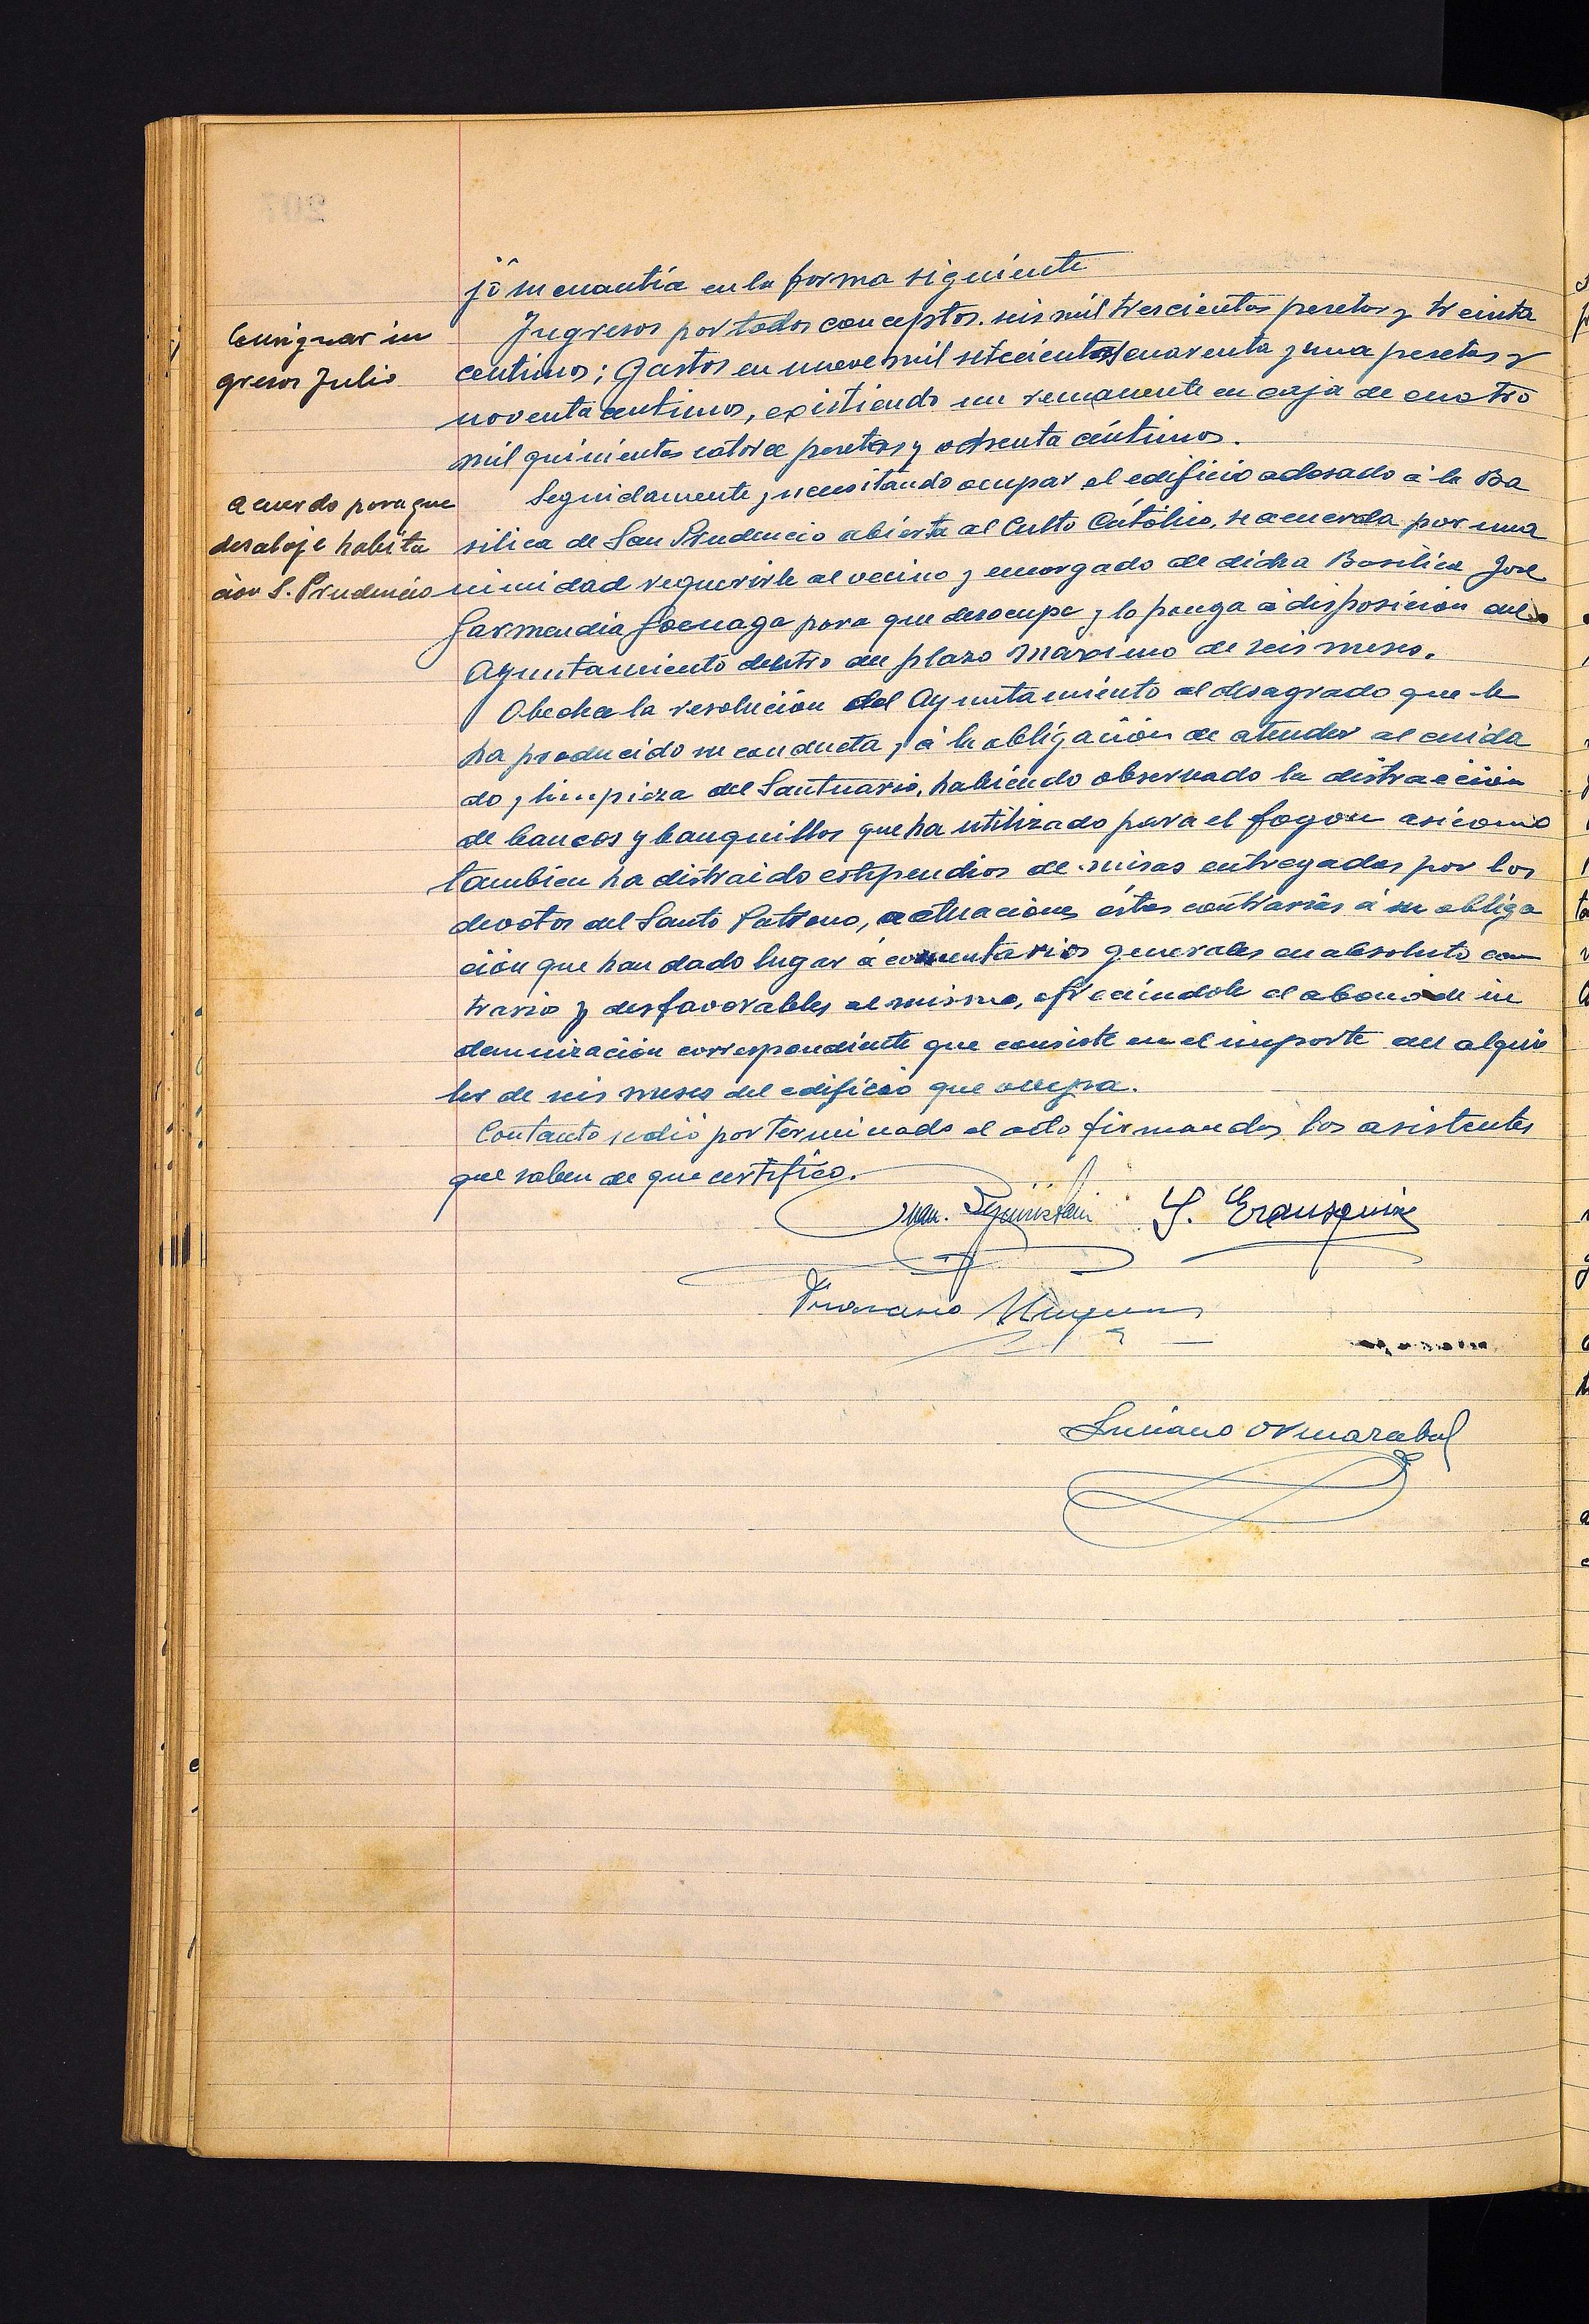 jó su cuantía en la forma siguiente
Consignar in
gresos Julio
Ingresos por todos conceptos. seis mil trescientas pesetas y treinta
centimos; Gastos en nueve mil setecientas cuarenta y una pesetas y
noventa centimos, existiendo un remanente en caja de cuatro
mil quinientas catorce pesetas y ochenta céntimos.
acuerdo para que
desaloje habita
ción S. Prudencio
Seguidamente, necesitando ocupar el edificio adosado á la Ba
silica de San Prudencio abierta al Culto Católico, se acuerda por una
nimidad requerirle al vecino y encargado de dicha Basílica José
Garmendia Goenaga para que desocupe y lo ponga á disposición del
Ayuntamiento dentro del plazo maximo de seis meses.
Obedece la resolución del Ayuntamiento al desagrado que le
ha producido su conducta, á la obligación de atender al cuida
do y limpieza del Santuario, habiendo observado la distracción
de bancos y banquillos que ha utilizado para el fogon asi como
tambien ha distraido estipendios de misas entregadas por los
devotos del Santo Patrono, actuaciones éstas contrarias á su obliga
ción que han dado lugar á comentarios generales en absoluto con
trario y desfavorables al mismo, ofreciéndole el abono de in
demnización correspondiente que consiste en el importe del alqui
ler de seis meses del edificio que ocupa.
Con tanto se dió por terminado el acto firmando los asistentes
que saben de que certifico.
Juan
S. Erausquin
Luciano Ormazabal
207